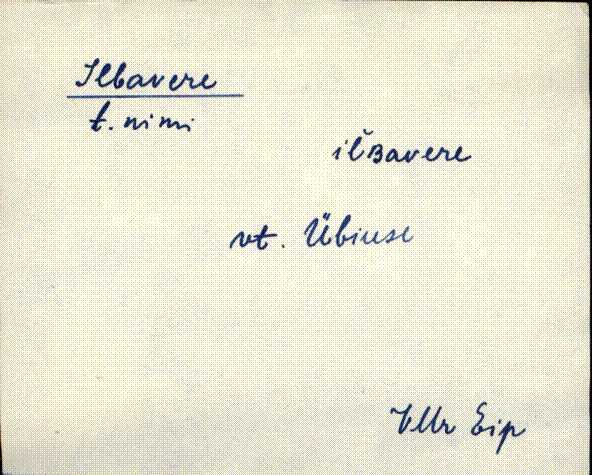 Ilbavere
t. nimi
ilʙavere
vt. Übiuse
VMr Eip